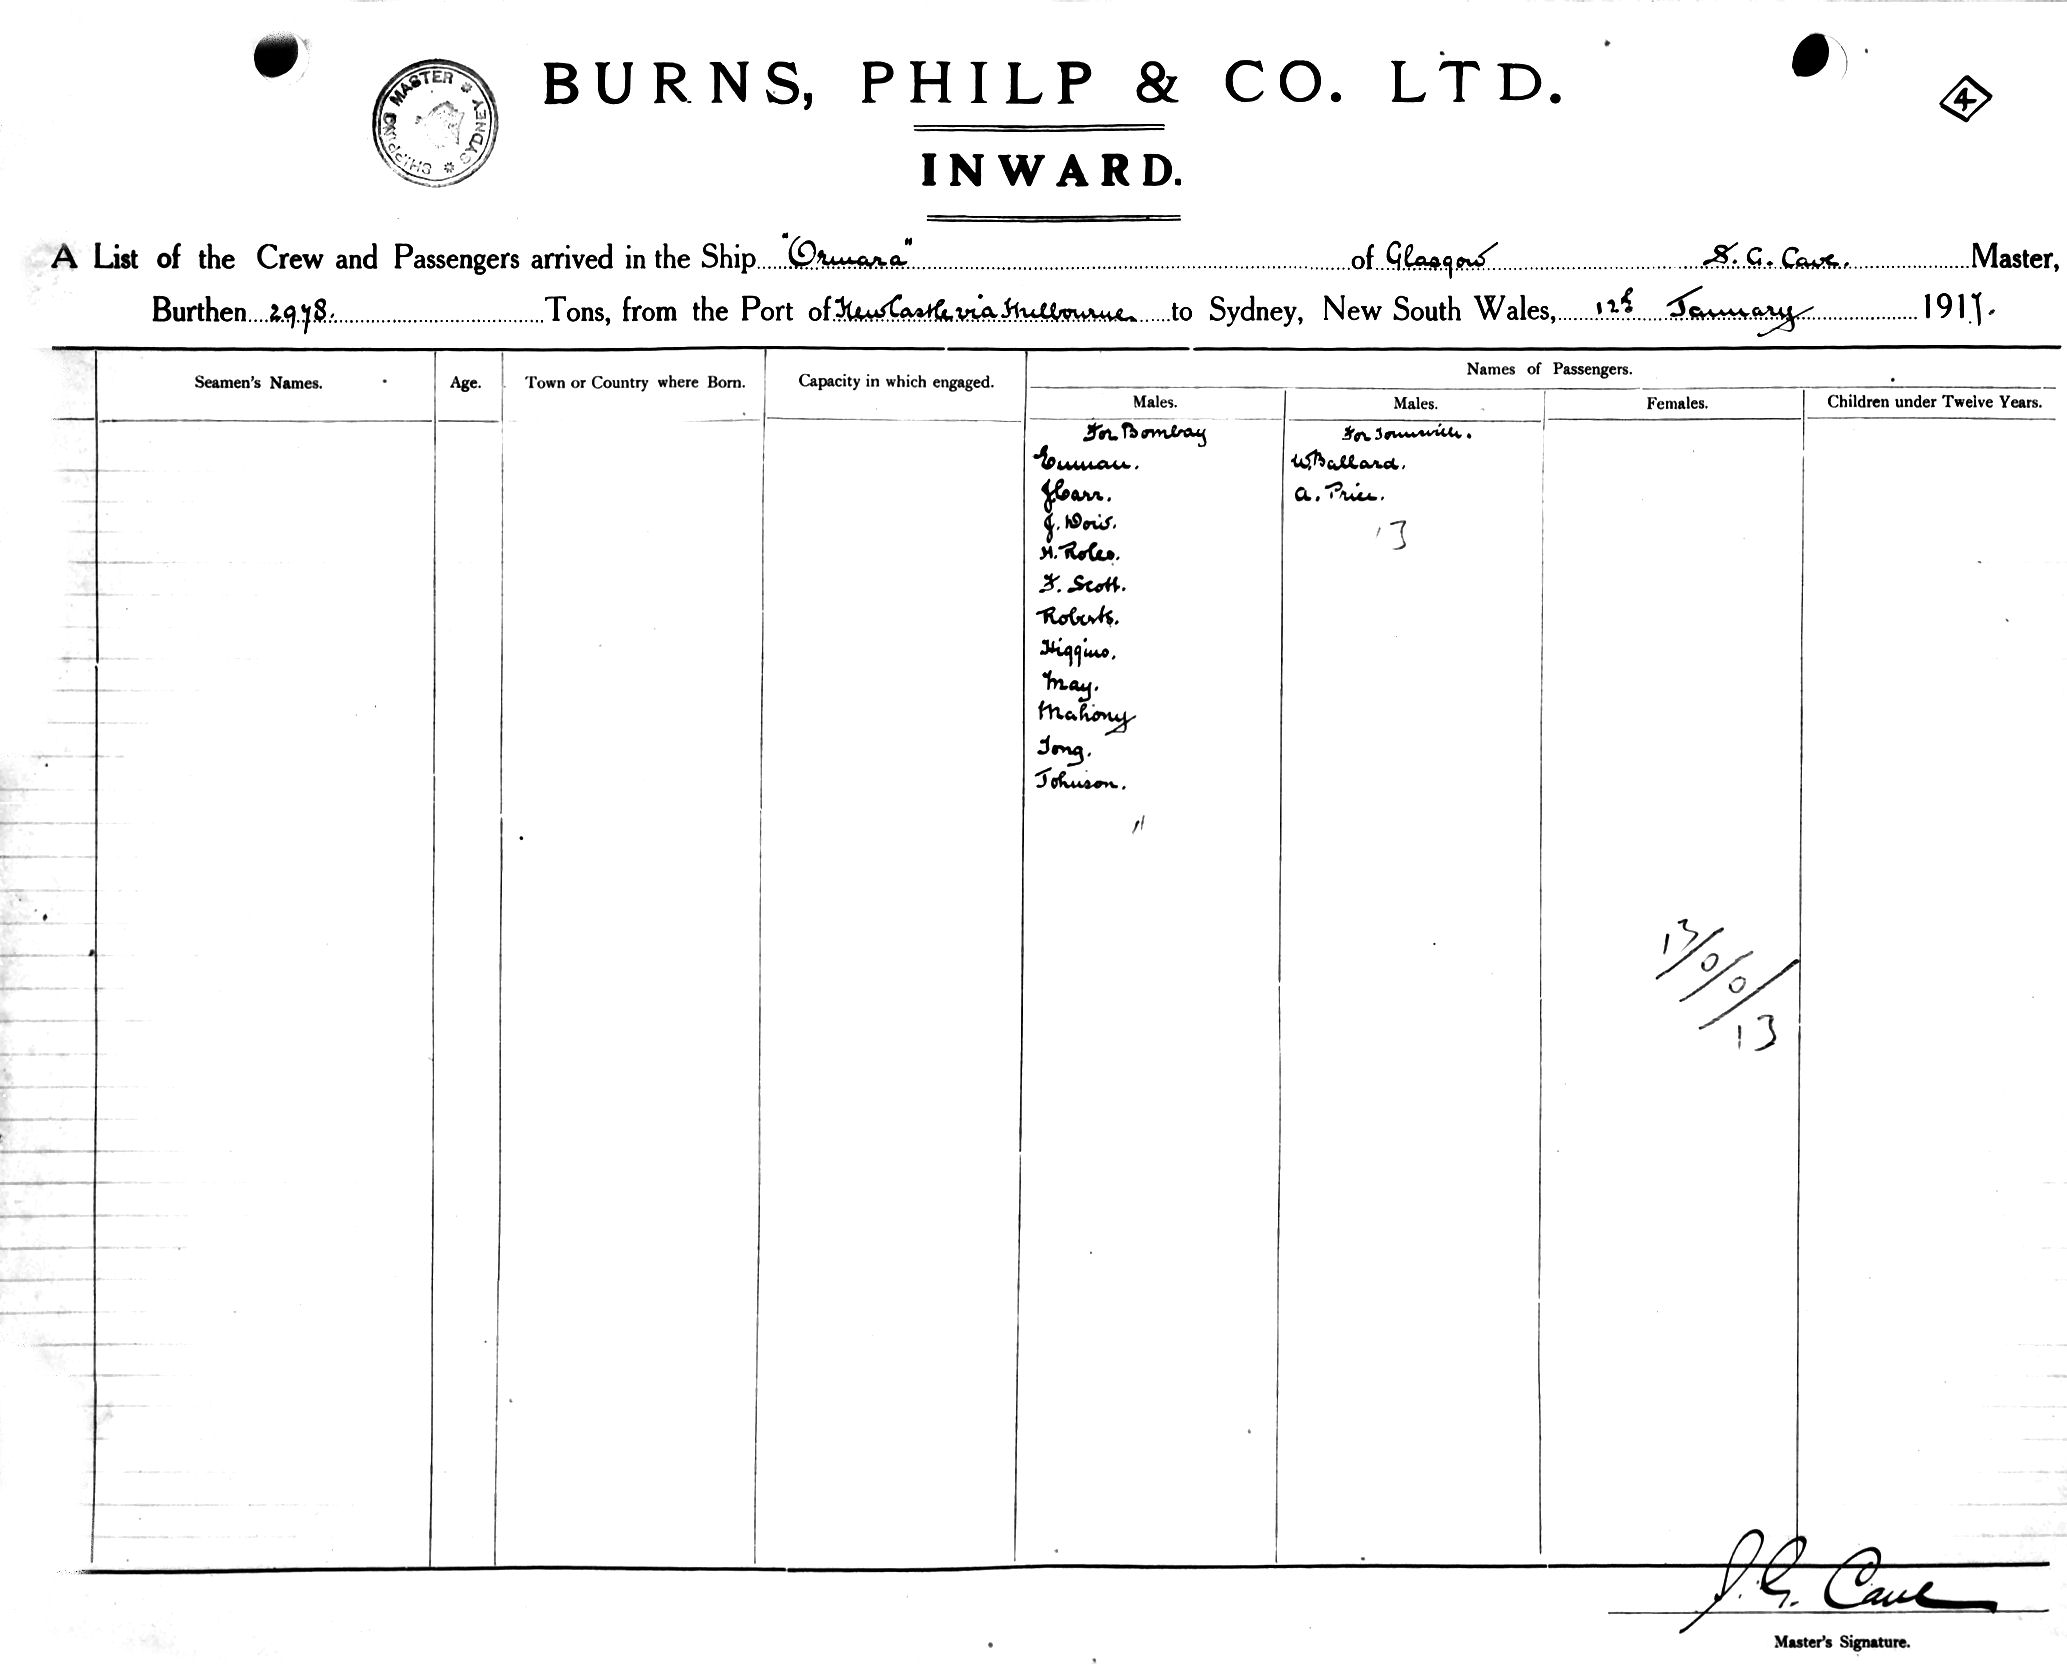 BURNS, PHILP & CO. LTD.
SHIPPING MASTER * SYDNEY *
4
INWARD.
A List of the Crew and Passengers arrived in the Ship "Ormara" of Glasgow S. G. Cave. Master,
Burthen 2978. Tons, from the Port of New Castle via Melbourne to Sydney, New South Wales, 12th January 1917.
Seamen's Names. Age. Town or Country where Born. Capacity in which engaged. Names of Passengers.
Males. Males. Females. Children under Twelve Years.
For Bombay For
W. Ballard.
J Carr. A. Price.
J.
H. 13
F. Scott.
Roberts.
Higgins.
May.
Mahony
Tong.
Johnson.
11
13/0/0/13
S. G. Cave
Master's Signature.